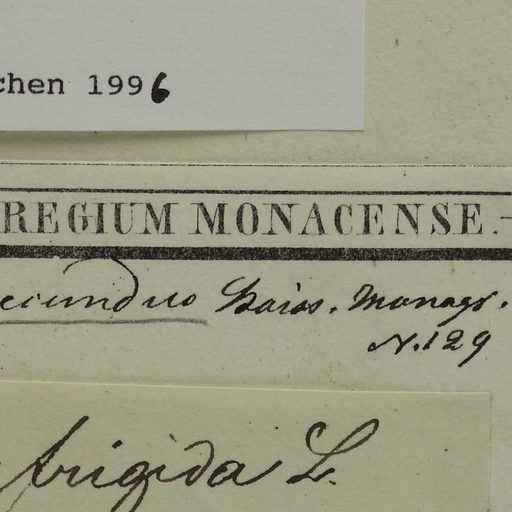 chen 1996
REGIUM MONACENSE.
ecundus Boiss. Monogr.
N. 129
frigida L.